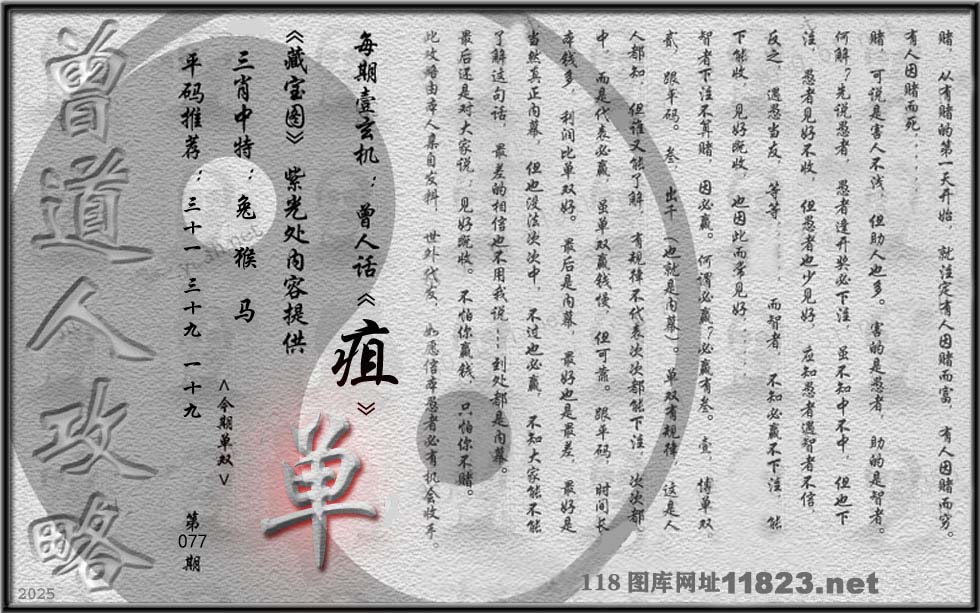 赌，从有赌的第一天开始，就注定有人因赌而富，有人因赌而穷。
有人因赌而死．．．．．．
赌，可说是害人不浅，但助人也多。害的是愚者，助的是智者。
何解？先说愚者，愚者逢开奖必下注，虽不知中不中，但也下
注，愚者见好不收，但愚者也少见好，应知愚者遇智者不信，
反之，遇愚当友，等等．．．．．．而智者，不知必赢不下注，能
下能收，见好既收，也因此而常见好．．．．．．
智者下注不算赌，因必赢。何谓必赢？必赢有叁。壹，博单双，
贰，跟平码。叁，出千（也就是内幕）。单双有规律，这是人
人都知，但谁又能了解，有规律不代表次次都能下注，次次都
中，而是代表必赢，虽单双赢钱慢，但可靠。跟平码，时间长
本钱多，利润比单双好。最后是内幕，最好也是最差，最好是
当然真正内幕，但也没法次次中，不过也必赢，不知大家能不能
了解这句话，最差的相信也不用我说---到处都是内幕。
最后还是对大家说：见好既收。不怕你赢钱，只怕你不赌。
此攻略由本人集自发料，世外代友，如愿信本愚者必有机会收手。
每期壹玄机：曾人话《疽》
《藏宝图》紫光处内容提供
三肖中特：兔 猴 马
平码推荐：三十一 三十九 一十九
<今期单双>
单
第
077
期
曾道人攻略
2025
118 图库网址11823.net